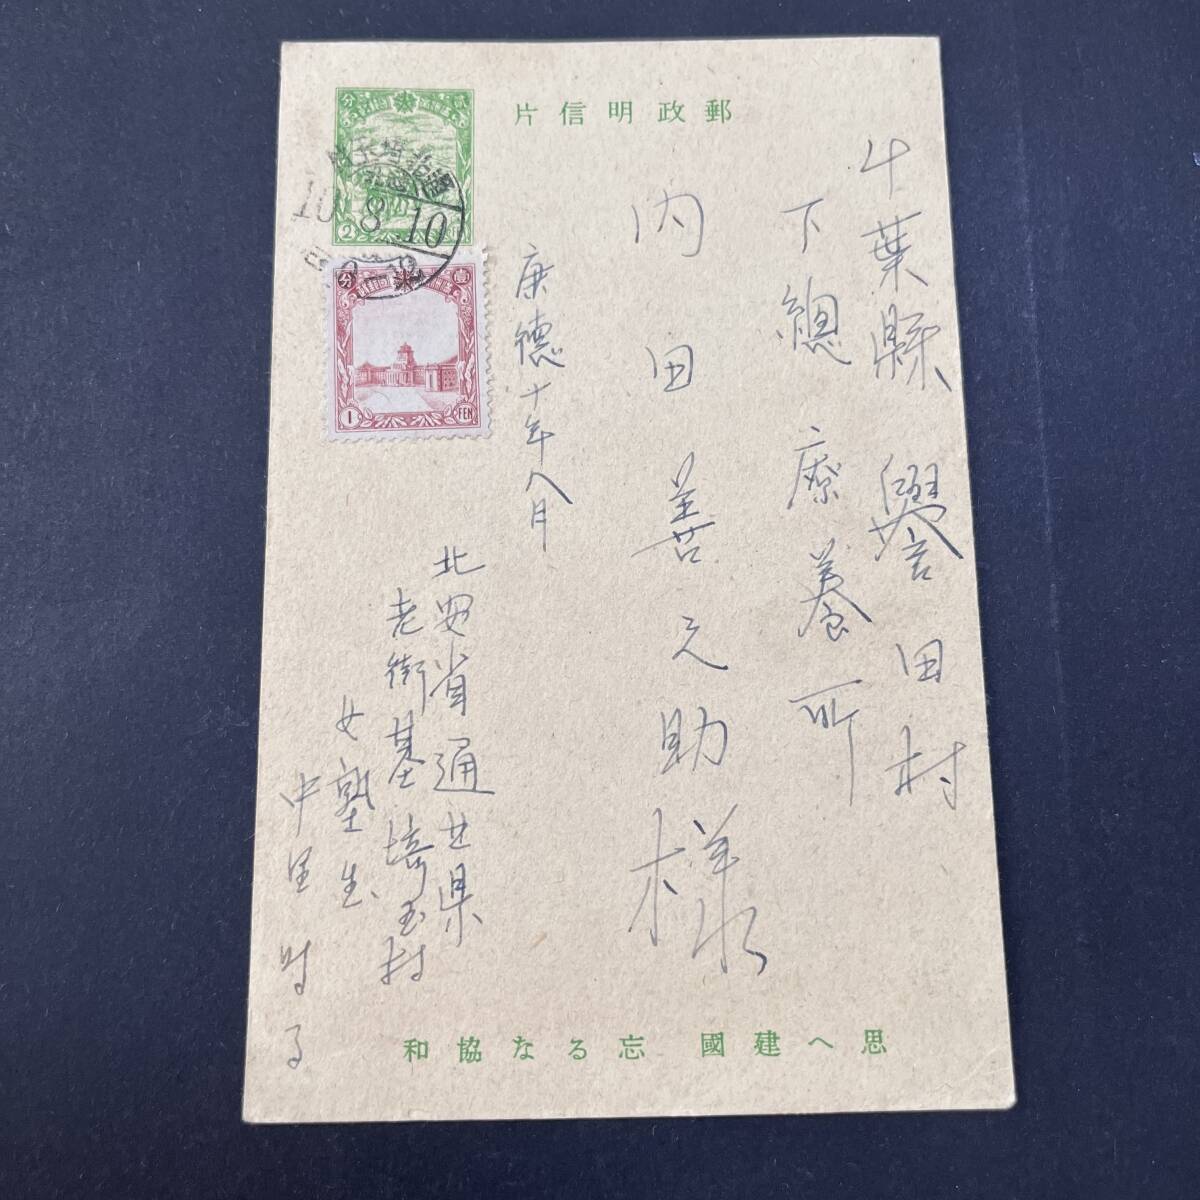 郵政明信片
千葉縣 譽田村
下總療養所
内田善之助様
康德十年八月
北安省通北県
老街基埼玉村
女塾生
中里
貳分
2
10.8.10
壹分
1
FEN
思へ建國 忘るな協和